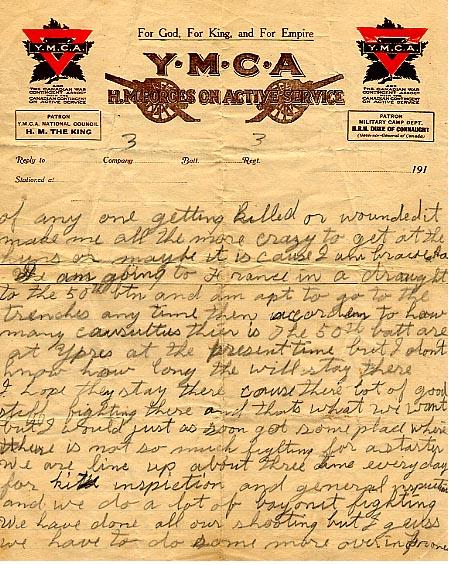 For God, For King, and For Empire
Y.M.C.A.
Y.M.C.A
Y.M.C.A.
H.M. FORCES ON ACTIVE SERVICE
THE CANADIAN WAR
CONTINGENT ASSOCN
CANADIAN CONTINGENT
ON ACTIVE SERVICE
THE CANADIAN WAR
CONTINGENT ASSOCN
CANADIAN CONTINGENT
ON ACTIVE SERVICE
PATRON
Y.M.C.A. NATIONAL COUNCIL
H. M. THE KING
PATRON
MILITARY CAMP DEPT.
H.R.H. DUKE OF CONNAUGHT
(Governor-General of Canada)
3 3
Reply to Company Batt. Regt. 191
Stationed at
of any one getting killed or wounded it
make me all the more crazy to get at the
or maybe it is cause I
We am going to France in a draught
to the 50th btn and am apt to go to the
trenches any time then accorden to how
many causulties thier is The 50th batt are
at Ypres at the present time but I dont
know how long the will stay there
I hope they stay there couse there lot of good
stiff fighting there and thats what we want
but I would just as soon got some plad where
there is not so much fighting for a starter
We are line up about three time everyday
for kit inspiction and general
and we do a lot of bayonit fighting
We have done all our shooting but I geuss
we have to do some more over in